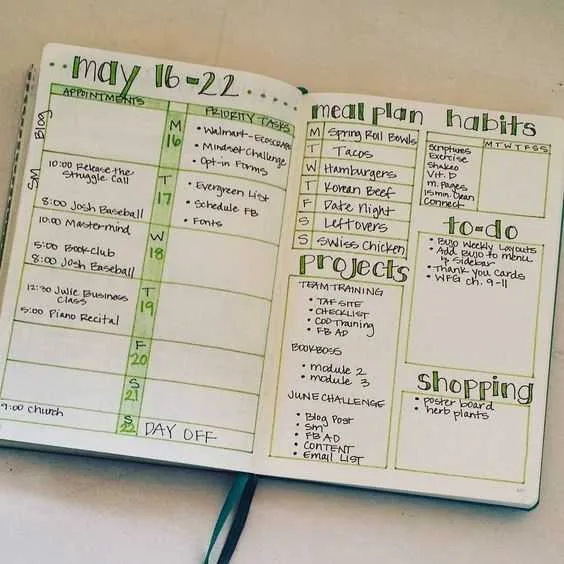 may 16-22
APPOINTMENTS
PRIORITY TASKS
Blog
SM
M
16
• Walmart-Ecoscraps
• Mindset Challenge
• Opt-in Forms
10:00 Release the
Struggle Call
8:00 Josh Baseball
T
17
• Evergreen List
• Schedule FB
• Fonts
10:00 Mastermind
5:00 Bookclub
8:00 Josh Baseball
W
18
12:30 Julie Business
Class
5:00 Piano Recital
T
19
F
20
S
21
9:00 Church
S
22
DAY OFF
meal plan
M Spring Roll Bowls
T Tacos
W Hamburgers
T Korean Beef
F Date Night
S Leftovers
S Swiss Chicken
projects
TEAM TRAINING
• TAF SITE
• CHECKLIST
• COD Training
• FB AD
BOOKBOSS
• module 2
• module 3
JUNE CHALLENGE
• Blog Post
• SM
• FB AD
• CONTENT
• Email LIST
habits
M T W T F S S
Scriptures
Exercise
Shakeo
Vit. D
m. Pages
15 min. Clean
Connect
to-do
• Bujo Weekly Layouts
• Add Bujo to menu
& Sidebar
• Thank you Cards
• WFG ch. 9-11
shopping
• poster board
• herb plants